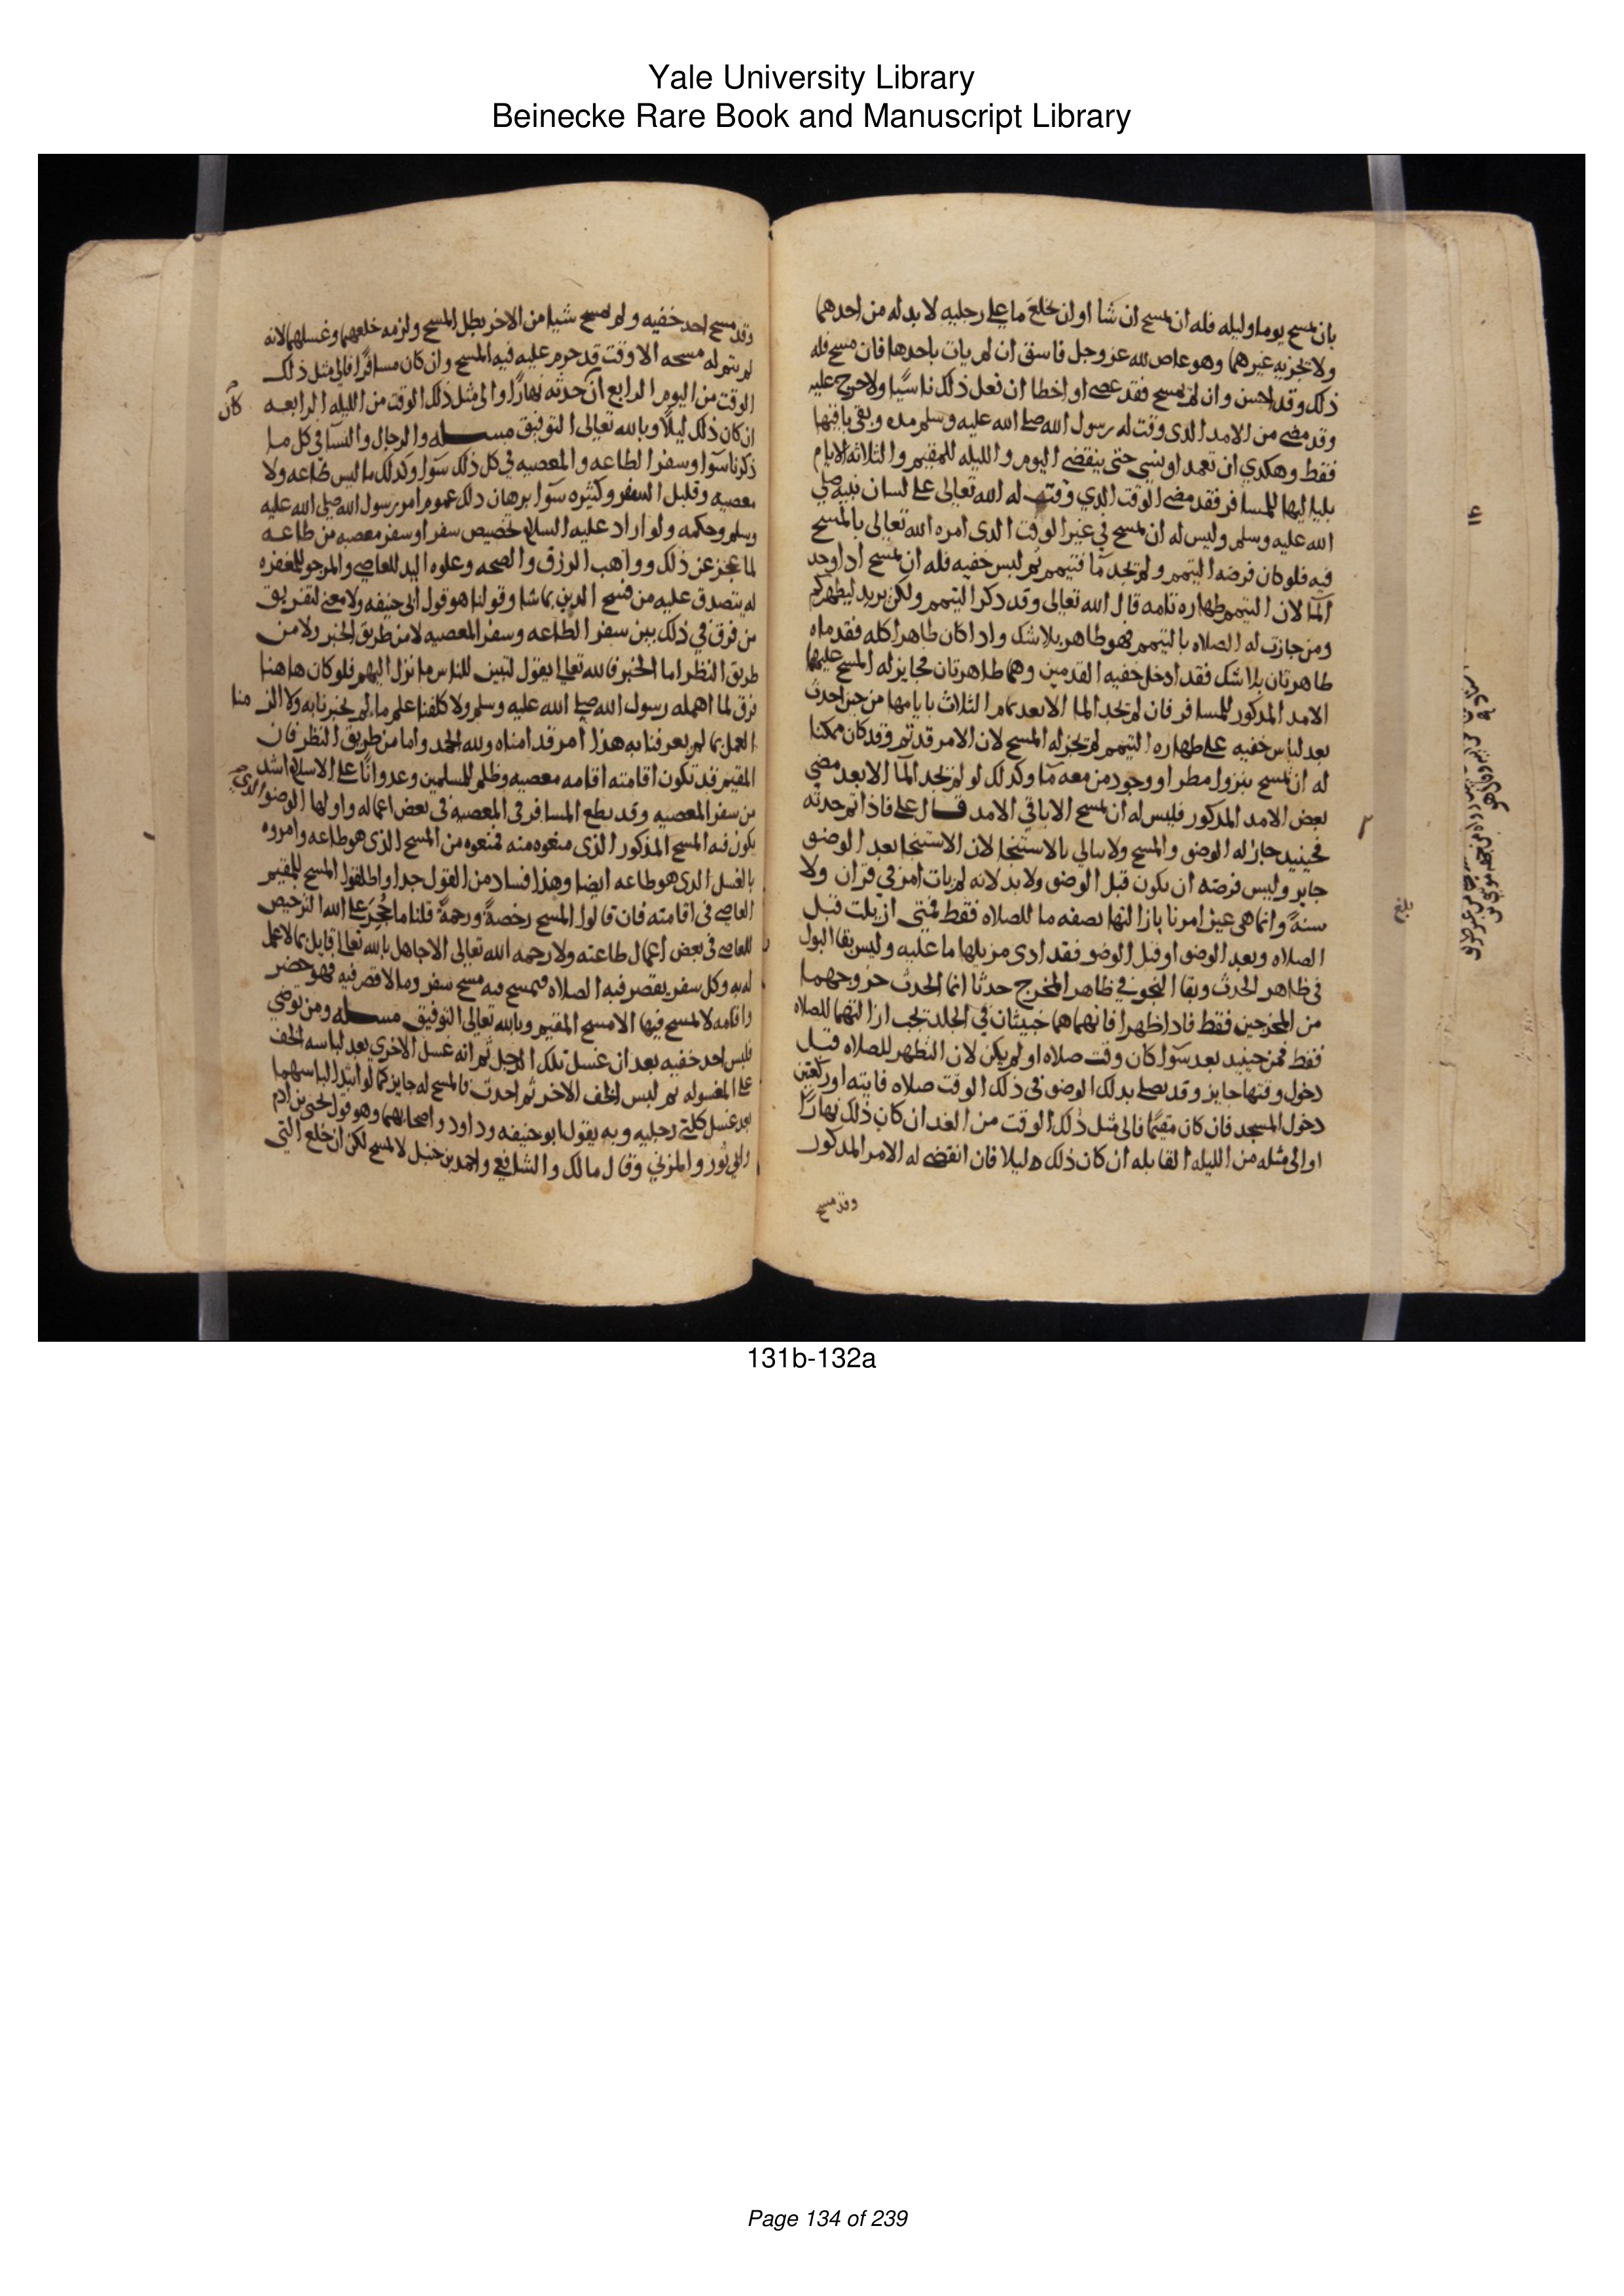 Yale University Library
Beinecke Rare Book and Manuscript Library
بان يمسح يوما وليله فله ان يمسح ان شا او ان يخلع ما على رجليه لا بد له من احدهما
ولا يجزيه غيرهما وهو عاص لله عز وجل فاسق ان لم يات باحدها فان مسح فله
ذلك وقد احسن وان لم يمسح فقد عصى او اخطا ان فعل ذلك ناسيا ولا حرج عليه
وقد مضى من الامد الدى وقت له رسول الله صلى الله عليه وسلم مده وبقى باقيها
فقط وهكدي ان تعمد او نسي حتى ينقضى اليوم والليله للمقيم والثلاثه الايام
بلياليها للمسافر فقد مضى الوقت الدي وقته له الله تعالى على لسان نبيه صلى
الله عليه وسلم وليس له ان يمسح في غير الوقت الدى امره الله تعالى بالمسح
فيه فلو كان فرضه التيمم ولم يجد مآ فتيمم ثم لبس خفيه فله ان يمسح ادا وجد
المآ لان التيمم طهاره تامه قال الله تعالى وقد دكر التيمم ولكن يريد ليطهركم
ومن جازت له الصلاه بالتيمم فهو طاهر بلا شك وادا كان طاهرا كله فقدماه
طاهرتان بلا شك فقد ادخل خفيه القدمين وهما طاهرتان فجايز له المسح عليهما
الامد المدكور للمسافر فان لم يجد الما الا بعد تمام الثلاث بايامها من حين احدث
بعد لباس خفيه على طهاره التيمم لم يجز له المسح لان الامر قد تم وقد كان ممكنا
له ان يمسح بنزول مطر او وجود من معه مآ وكدلك لو لم يجد المآ الا بعد مضي
بعض الامد المدكور فليس له ان يمسح الا باقي الامد قال على فاذا تم حدثه
فحينيد جاز له الوضو والمسح ولا يبالي بالاستنجا لان الاستنجا بعد الوضو
جايز وليس فرضه ان يكون قبل الوضو ولا بد لانه لم يات امر في قران ولا
سنة وانما هي عين امرنا بازالتها بصفه ما للصلاه فقط فمتى ازيلت قبل
الصلاه وبعد الوضو او قبل الوضو فقد ادى مزيلها ما عليه وليس بقا البول
فى ظاهر الحدث وبقا النجو في ظاهر المخرج حدثا انما الحدث خروجهما
من المخرجين فقط فادا ظهرا فانهما هما خبيثان في الجلد تجب ازالتهما للصلاه
فقط فمن حينيد بعد سوا كان وقت صلاه او لم يكن لان التطهر للصلاه قبل
دخول وقتها جايز وقد يصلى بدلك الوضو فى ذلك الوقت صلاه فايته او ركعتين
دخول المسجد فان كان مقيما فالى مثل ذلك الوقت من الغد ان كان ذلك نهارا
او الى مثله من الليله القابله ان كان ذلك ليلا فان انقضى له الامر المدكور
وقد مسح
بلغ
وقد مسح احد خفيه ولم يمسح شيا من الاخر بطل المسح ولزمه خلعهما وغسلهما لانه
لم يتم له مسحه الا وقت قد حرم عليه فيه المسح وان كان مسافرا فالى مثل ذلك
الوقت من اليوم الرابع ان حدثه نهارا والى مثل ذلك الوقت من الليله الرابعه
كان
ان كان ذلك ليلا وبالله تعالى التوفيق مسـله والرجال والنسآ في كل ما
ذكرنا سوا وسفر الطاعه والمعصيه في كل ذلك سوا وكدلك ما ليس طاعه ولا
معصيه وقليل السفر وكثيره سوا برهان دلك عموم امر رسول الله صلى الله عليه
وسلم وحكمه ولو اراد عليه السلام تخصيص سفر او سفر معصيه من طاعه
لما عجز عن ذلك وواهب الرزق والصحه وعلوه اليد للعاصي والمرجو للمغفره
له يتصدق عليه من فسح الدين بما شا وقولنا هو قول ابى حنيفه ولا معنى لتفريق
من فرق في ذلك بين سفر الطاعه وسفر المعصيه لا من طريق الخبر ولا من
طريق النظر اما الخبر فالله تعالى يقول لتبين للناس ما نزل اليهم فلو كان هاهنا
فرق لما اهمله رسول الله صلى الله عليه وسلم ولا كلفنا علم ما لم يخبرنا به ولا الزمنا
العمل بما لم يعرفنا به هذا امر قد امناه ولله الحمد واما من طريق النظر فان
المقيم قد تكون اقامته اقامه معصيه وظلم للمسلمين وعدوانا على الاسلام اشد
من سفر المعصيه وقد يطع المسافر في المعصيه في بعض اعماله واولها الوضو الدي
يكون فيه المسح المذكور الذى منعوه منه فمنعوه من المسح الذى هو طاعه وامروه
بالغسل الدى هو طاعه ايضا وهذا فساد من القول جدا واطلقوا المسح للمقيم
العاصي فى اقامته فان قالوا المسح رخصة ورحمة قلنا ما حجر على الله الترخيص
للعاصي في بعض اعمال طاعته ولا رحمه الله تعالى الا جاهل بالله تعالى قايل بما لا علم
له به وكل سفر يقصر فيه الصلاه فيمسح فيه مسح سفر وما لا قصر فيه فهو حضر
واقامه لا يمسح فيها الا مسح المقيم وبالله تعالى التوفيق مسـله ومن توضي
فلبس احد خفيه بعد ان غسل تلك الرجل ثم انه غسل الاخري بعد لباسه الخف
على المغسوله ثم لبس الخف الاخر ثم احدث فالمسح له جايز كما لو ابتدا لباسهما
بعد غسل كلتى رجليه وبه يقول ابو حنيفه وداود واصحابهما وهو قول يحيى بن ادم
وابي ثور والمزني وقال مالك والشافعي واحمد بن حنبل لا يمسح لكن ان خلع التي
131b-132a
Page 134 of 239